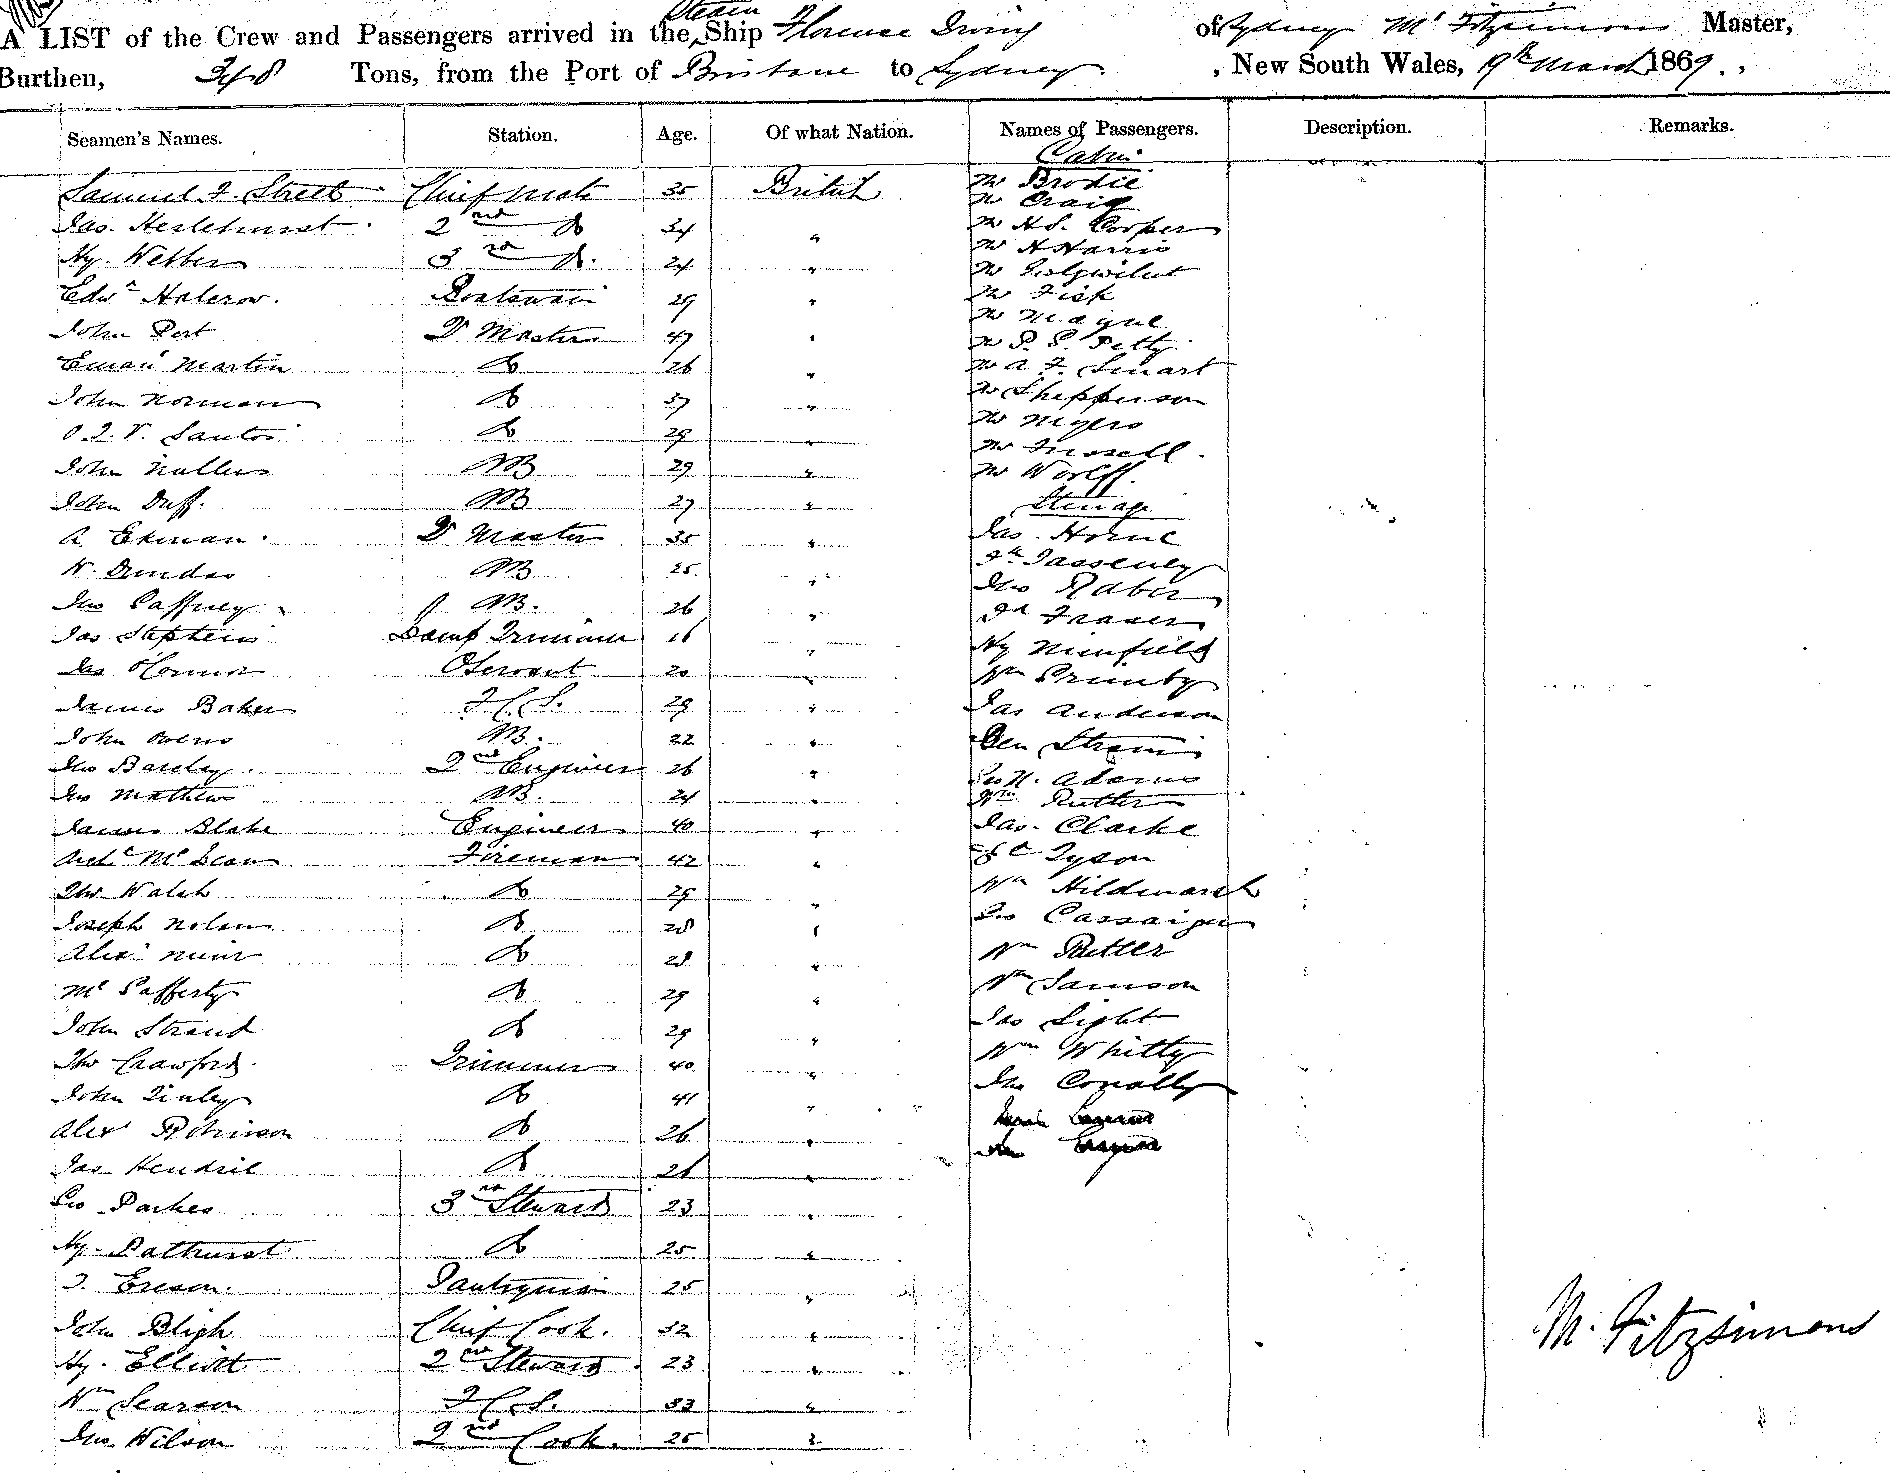 Steam
A LIST of the Crew and Passengers arrived in the Ship Florence Irving of Sydney Mr Fitzsimons Master,
Burthen, 348 Tons, from the Port of Brisbane to Sydney, New South Wales, 9th March 1869.
Seamen's Names. Station. Age. Of what Nation. Names of Passengers. Description. Remarks.
Cabin
Samuel F. Street Chief Mate 35 British Mr Brodie
Mr Craig
Jas. Heslehurst 2nd Do 34 " Mr H S. Cooper
Hy. Webber 3rd Do. 24 " Mr H Harris
Mr
Edwd Holcrow. Boatswain 29 " Mr Fisk
John Port Qr Master 47 " Mr
Mr P. P. Petty
Eman Martin Do 26 " Mr A. F. Smart
John Norman Do 37 " Mr Shepperson
O. J. V. Santos Do 29 " Mr Myers
John AB 29 " Mr
Mr Woolff.
John Duff. AB 27 " Steerage
A Ekman. Qr Master 35 " Jas. Horne
W. Dundas AB 25 "
Jno Caffrey AB. 26 " Jno Raber
Jas Stephens Lamp Trimmer 16 " Fraser
Jas O'Connor O Servant 20 " Hy Minfield
James Baker F.C.S. 29 " Wm
Jas Anderson
John Owens AB. 22 " Ben
Jno Barclay 2nd Engineer 26 " Geo H. Adams
Jno Mathews AB. 24 " Wm Rutter
James Blake Engineer 40 " Jas. Clarke
Archd McLean Fireman 42 " Tyson
Tho Walsh Do 29 " Wm Hildmarsh
Joseph Nolan Do 28 "
Alexr Muir Do 28 " Wm Butler
Mc Cafferty Do 29 " Wm Samson
John Strand Do 29 " Jas Light
Tho Crawford. Trimmer 40 " Wm Whitty
John Finlay Do 41 " Jno Conolly
Alexr Robinson Do 26 "
Jas Hendrie Do 26 "
Geo Parkes 3rd Steward 23 "
Hy. Bathurst Do 25 "
J. Pantryman 25 "
John Bligh Chief Cook. 32 "
M. Fitzsimons
Hy. Elliott 2nd Steward 23 "
Wm Searson F.C.S. 33 "
Jno Wilson 2nd Cook. 25 "